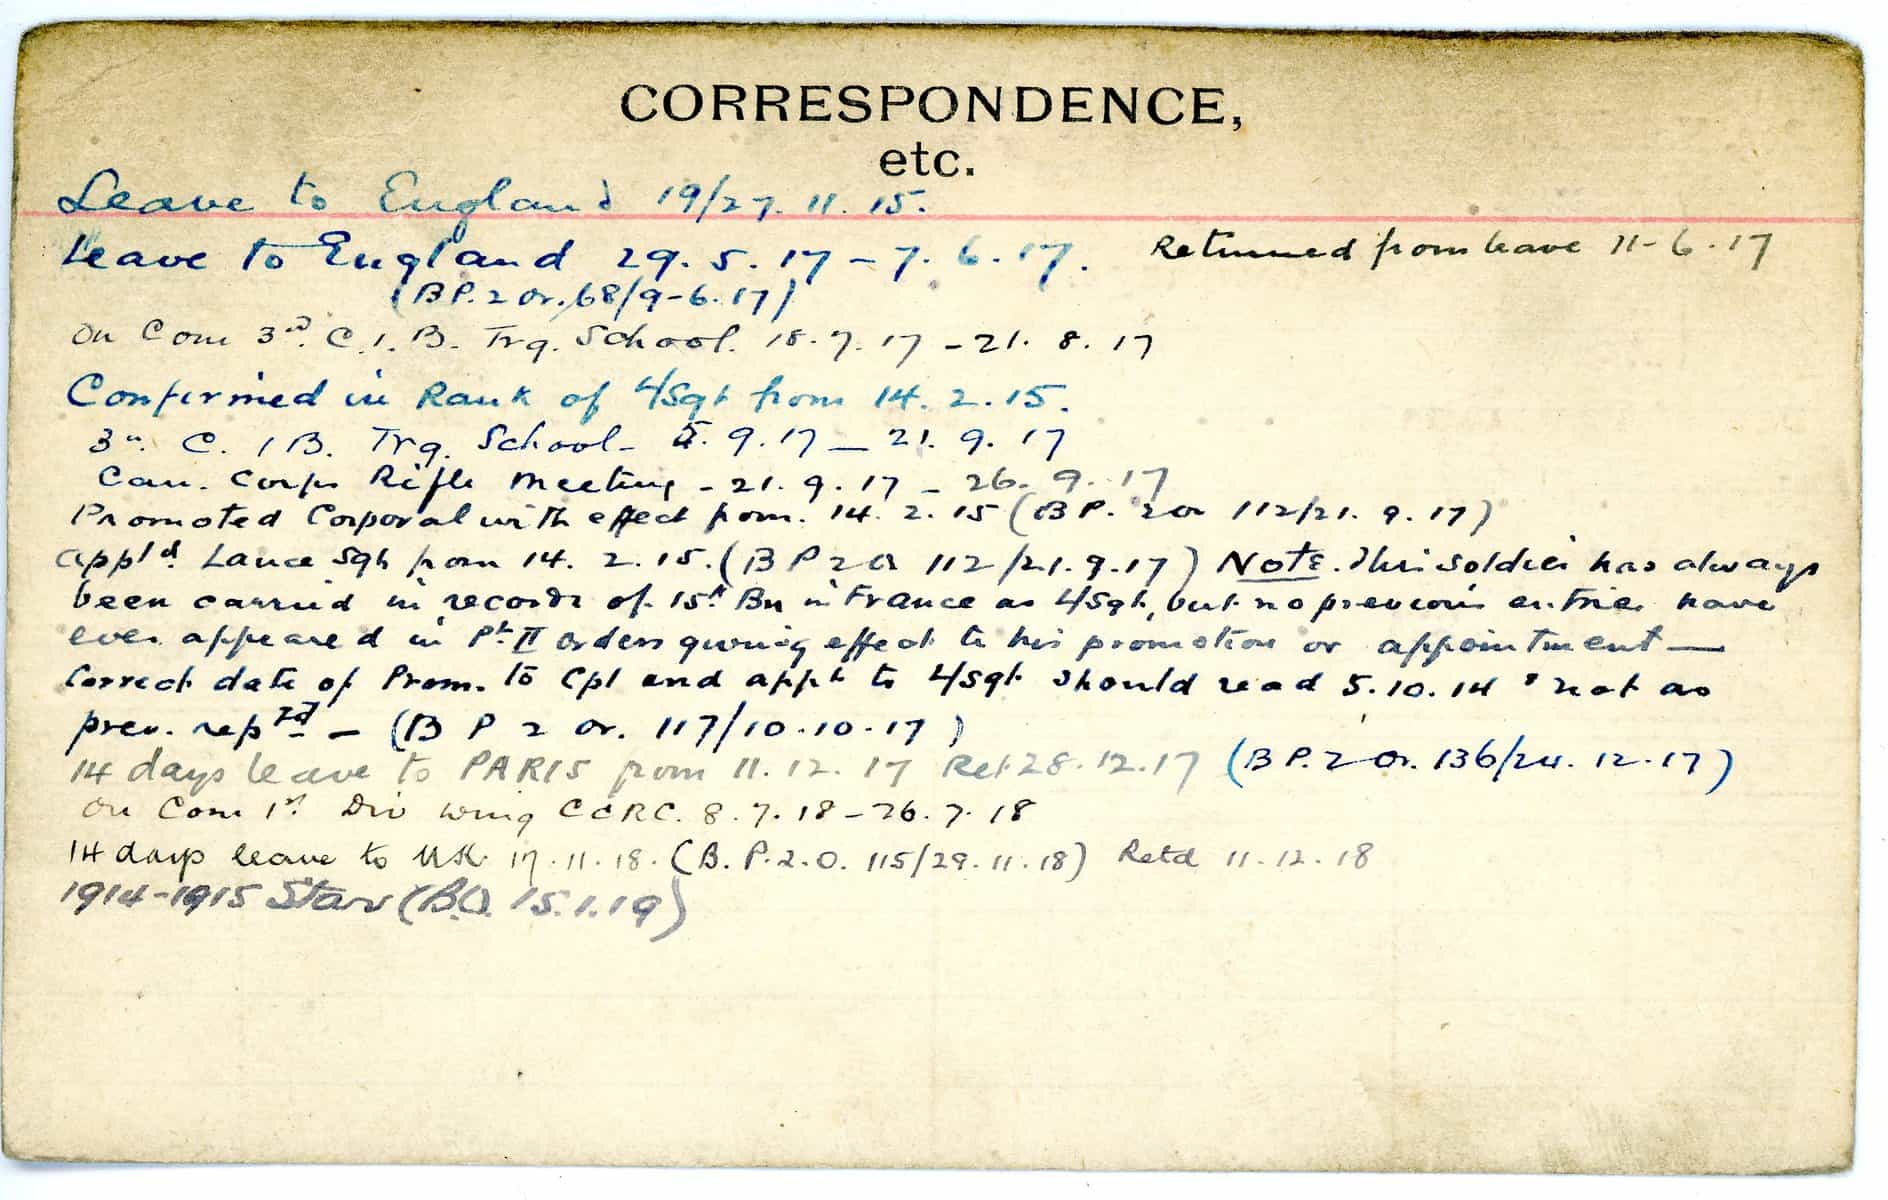 CORRESPONDENCE,
etc.
Leave to England 19/27. 11. 15.
Leave to England 29. 5. 17 – 7. 6. 17. Returned from leave 11-6-17
(B P. 2 Or. 68/9-6.17)
On Com 3rd. C. I. B. Trg. School. 18. 7. 17 – 21. 8. 17
Confirmed in Rank of L/Sgt from 14. 2. 15.
3rd C. I B. Trg. School – 9. 17 — 21. 9. 17
Can. Corps Rifle Meeting – 21. 9. 17 – 26. 9. 17
Promoted Corporal with effect from. 14. 2. 15 (B P. 2 Or 112/21. 9. 17)
Appt'd. Lance Sgt from 14. 2. 15. (B P 2 O 112/21. 9. 17) Note. This soldier has always
been carried in records of 15th Bn in France as L/Sgt, but no previous entries have
ever appeared in Pt II orders giving effect to his promotion or appointment —
Correct date of Prom. to Cpl and appt to L/Sgt should read 5. 10. 14 & not as
prev. reptd – (B P 2 Or. 117/10-10-17)
14 days leave to PARIS from 11. 12. 17 Ret 28. 12. 17 (B P. 2 Or. 136/24. 12. 17)
On Com 1st Div Wing CCRC. 8. 7. 18 – 26. 7. 18
14 days leave to UK 17. 11. 18. (B. P. 2. O. 115/29. 11. 18) Retd 11. 12. 18
1914-1915 Star (B.O. 15.1.19)